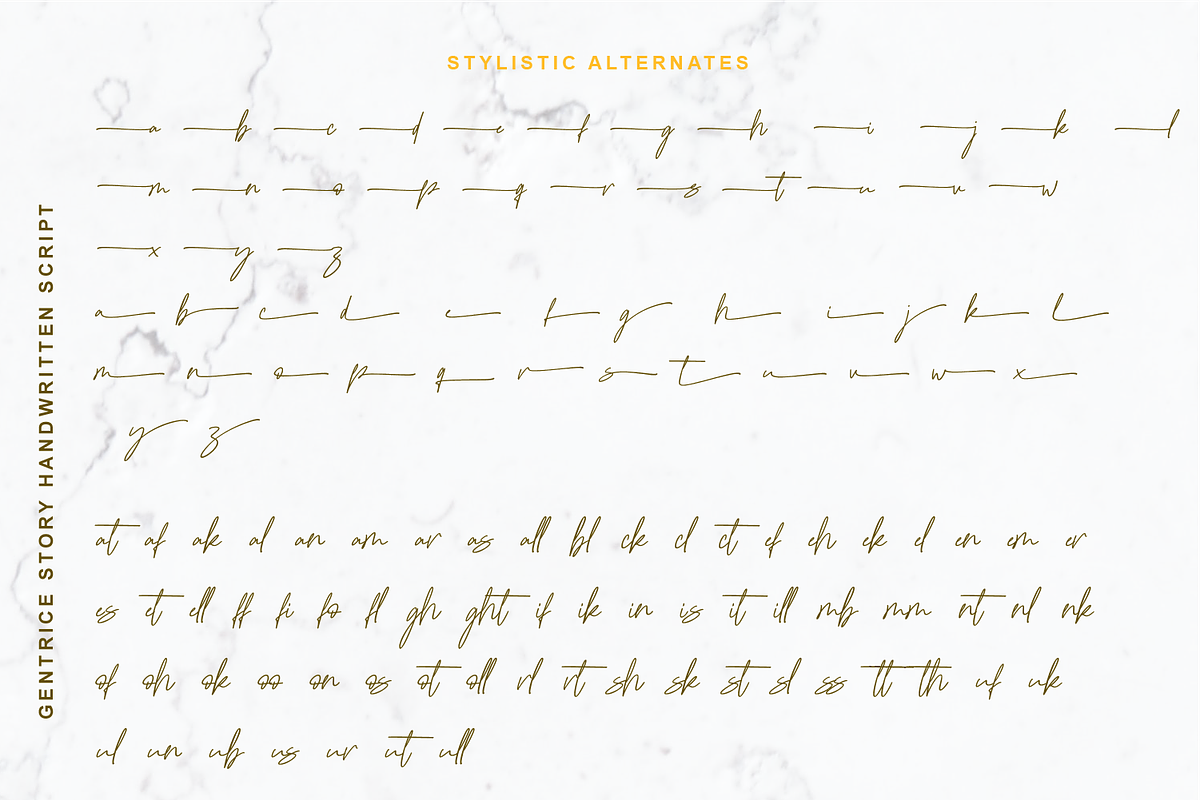 STYLISTIC ALTERNATES
a b c d e f g h i j k l
m n o p q r s t u v w
x y z
a b c d e f g h i j k l
m n o p q r s t u v w x
y z
at af ak al an am ar as all bl ck cl ct ef eh ek el en em er
es et ell ff fi fo fl gh ght if ik in is it ill mb mm nt nl nk
of oh ok oo on os ot oll rl rt sh sk st sl ss tt th uf uk
ul un ub us ur ut ull
GENTRICE STORY HANDWRITTEN SCRIPT